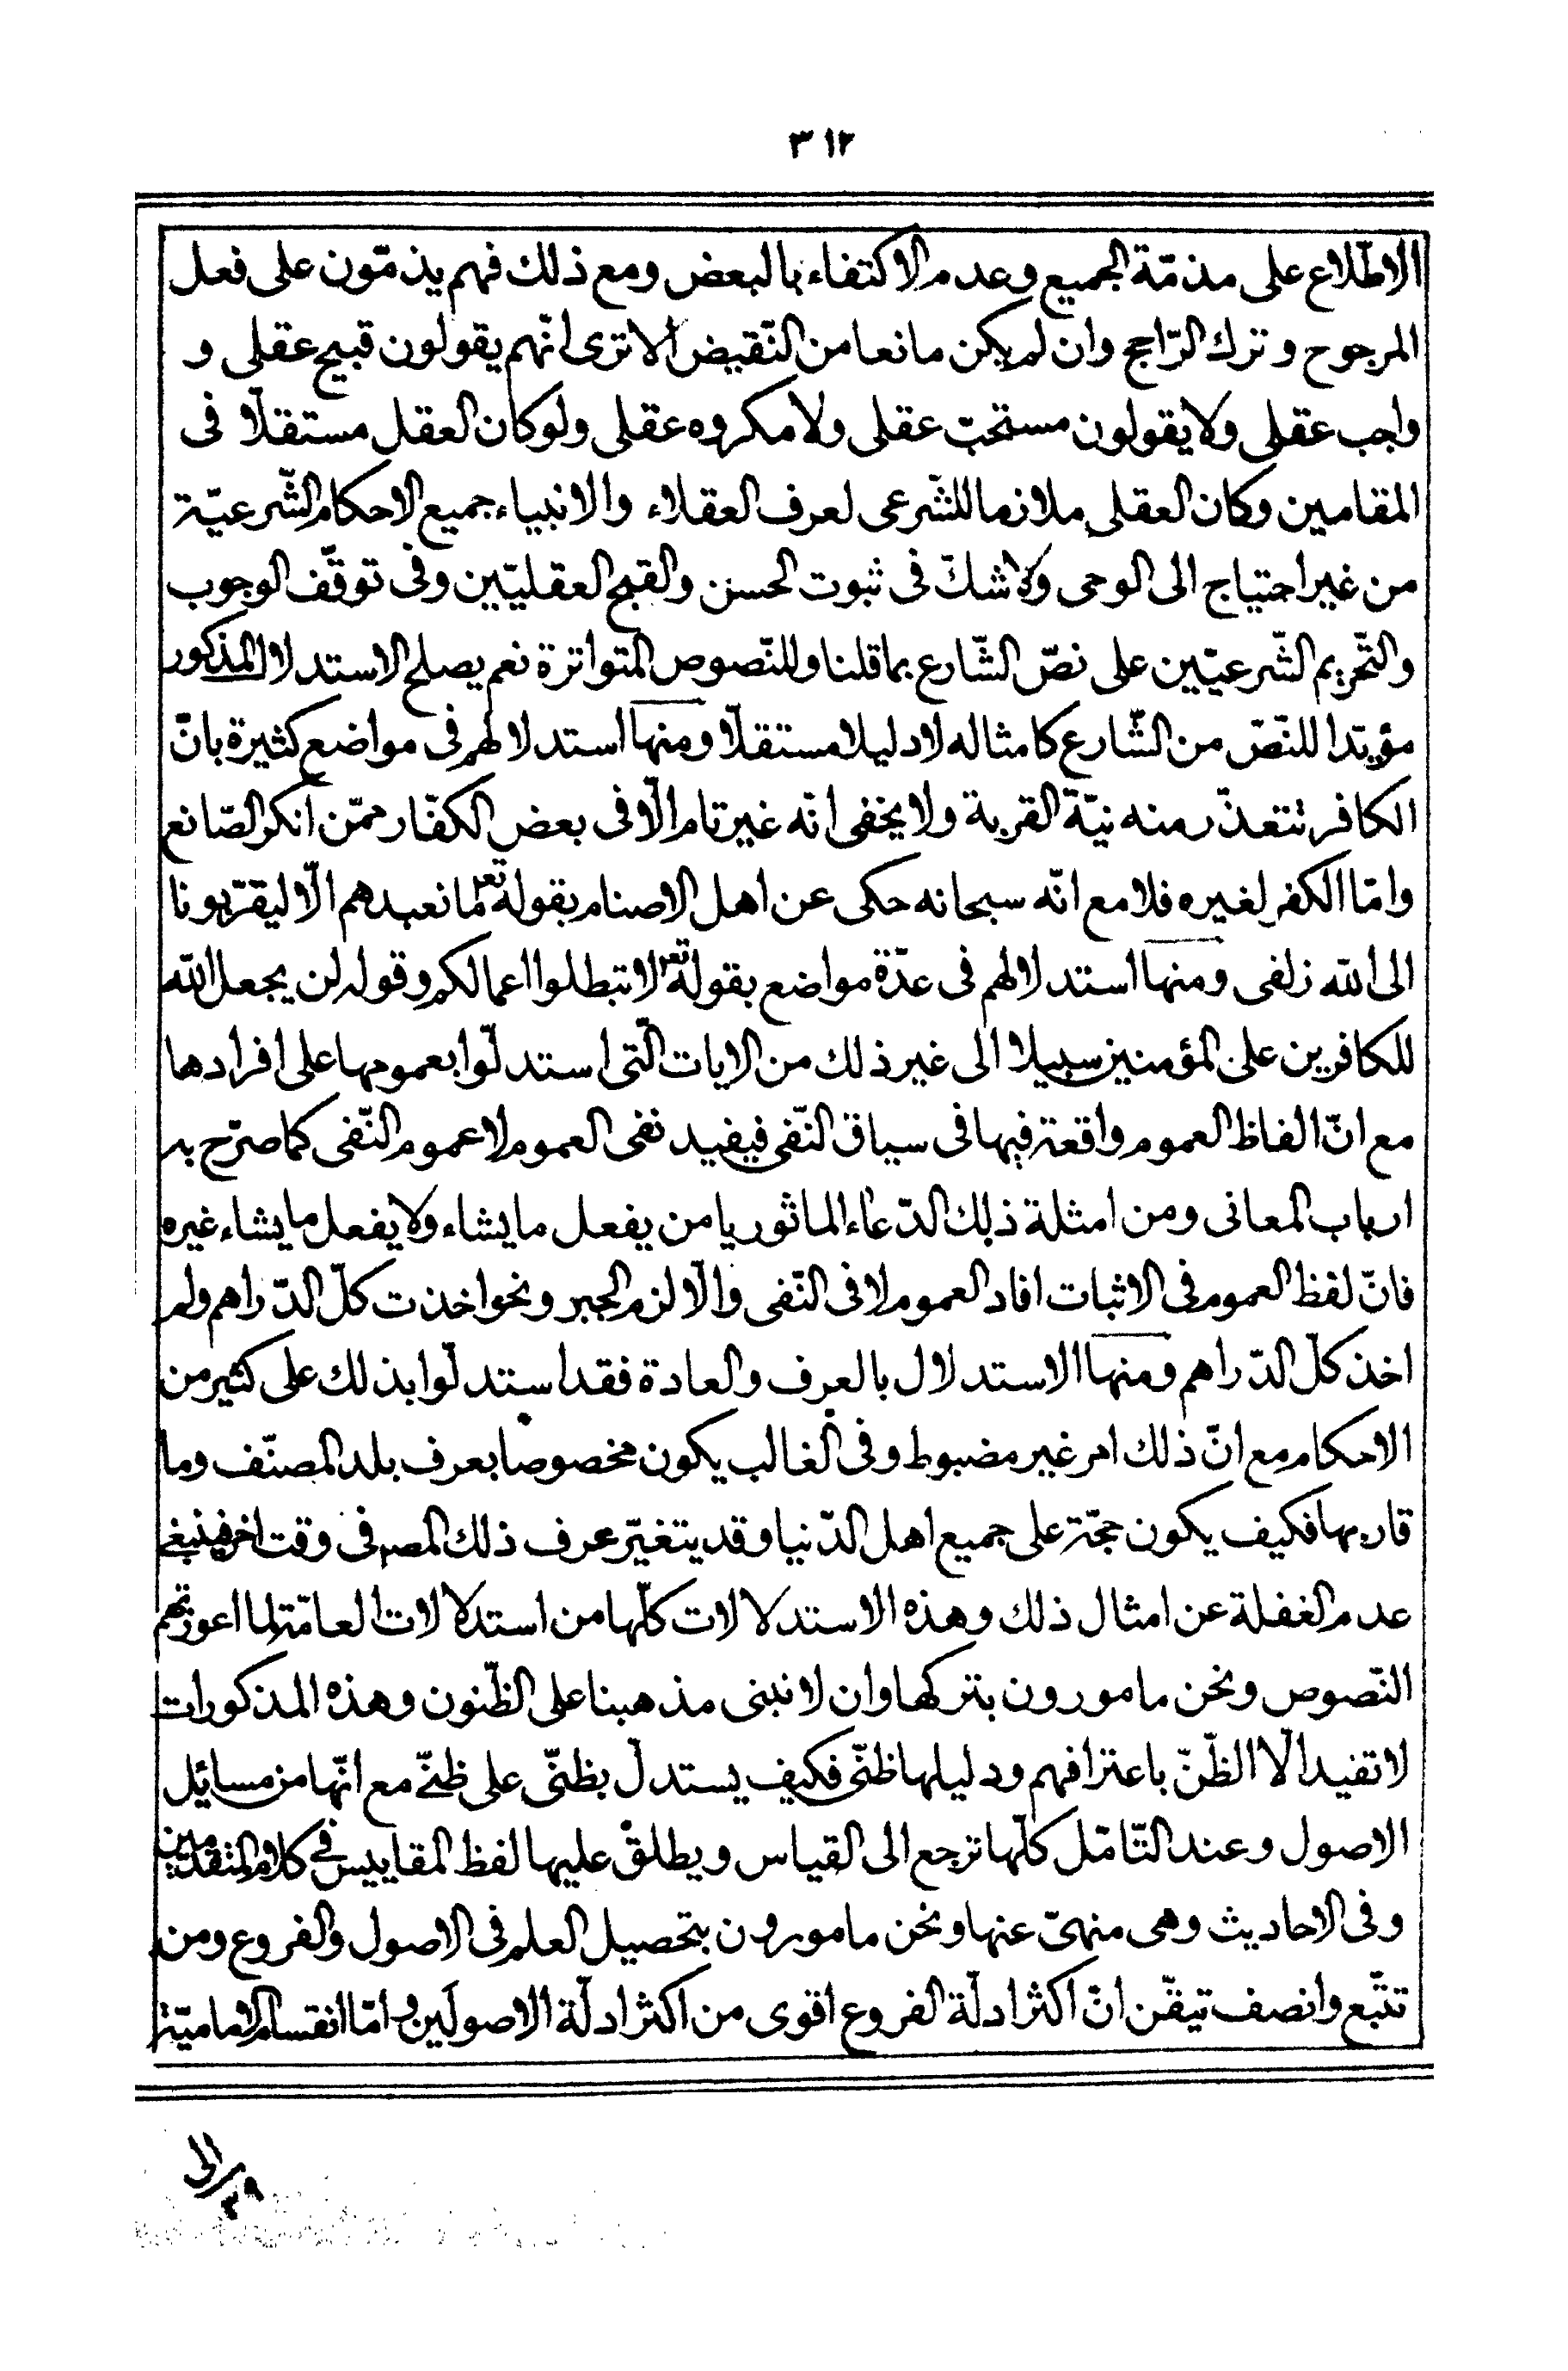 ٣١٢
الاطّلاع على مذمّة الجميع وعدم الاكتفاء بالبعض ومع ذلك فهم يذمّون على فعل
المرجوح وترك الرّاجح وان لم يكن مانعا من النّقيض الا ترى انّهم يقولون قبيح عقلى و
واجب عقلى ولا يقولون مستحبّ عقلى ولا مكروه عقلى ولو كان العقل مستقلّا فى
المقامين وكان العقلى ملازما للشّرعى لعرف العقلاء والانبياء جميع الاحكام الشّرعيّة
من غير احتياج الى الوحى ولا شكّ فى ثبوت الحسن والقبح العقليّين وفى توقّف الوجوب
والتّحريم الشّرعيّين على نصّ الشّارع بما قلنا وللنّصوص المتواترة نعم يصلح الاستدلال المذكور
مؤيّدا للنّصّ من الشّارع كامثاله لا دليلا مستقلّا ومنها استدلالهم فى مواضع كثيرة بانّ
الكافر تتعذّر منه نيّة القربة ولا يخفى انّه غير تام الّا فى بعض الكفّار ممّن انكر الصّانع
وامّا الكفر لغيره فلا مع انّه سبحانه حكى عن اهل الاصنام بقوله تعر لما نعبدهم الّا ليقرّبونا
الى الله زلفى ومنها استدلالهم فى عدّة مواضع بقوله تعر لا تبطلوا اعمالكم وقوله لن يجعل الله
للكافرين على المؤمنين سبيلا الى غير ذلك من الايات الّتى استدلّوا بعمومها على افرادها
مع انّ الفاظ العموم واقعة فيها فى سياق النّفى فيفيد نفى العموم لا عموم النّفى كما صرّح به
ارباب المعانى ومن امثلة ذلك الدّعاء الماثور يا من يفعل ما يشاء ولا يفعل ما يشاء غيره
فانّ لفظ العموم فى الاثبات افاد العموم لا فى النّفى والّا لزم الجبر ونحو اخذت كلّ الدّراهم ولم
اخذ كلّ الدّراهم ومنها الاستدلال بالعرف والعادة فقد استدلّوا بذلك على كثير من
الاحكام مع انّ ذلك امر غير مضبوط وفى الغالب يكون مخصوصا بعرف بلد المصنّف وما
قاربها فكيف يكون حجّة على جميع اهل الدّنيا وقد يتغيّر عرف ذلك المصر فى وقت اخر فينبغى
عدم الغفلة عن امثال ذلك وهذه الاستدلالات كلّها من استدلالات العامّة لما اعوزتهم
النّصوص ونحن مامورون بتركها وان لا نبنى مذهبنا على الظّنون وهذه المذكورات
لا تفيد الّا الظّنّ باعترافهم ودليلها ظنّى فكيف يستدلّ بظنّى على ظنّى مع انّها من مسائل
الاصول وعند التّامّل كلّها ترجع الى القياس ويطلق عليها لفظ المقاييس فى كلام المتقدّمين
وفى الاحاديث وهى منهىّ عنها ونحن مامورون بتحصيل العلم فى الاصول والفروع ومن
تتبّع وانصف تيقّن انّ اكثر ادلّة الفروع اقوى من اكثر ادلّة الاصولين وامّا انقسام الاماميّة
الى